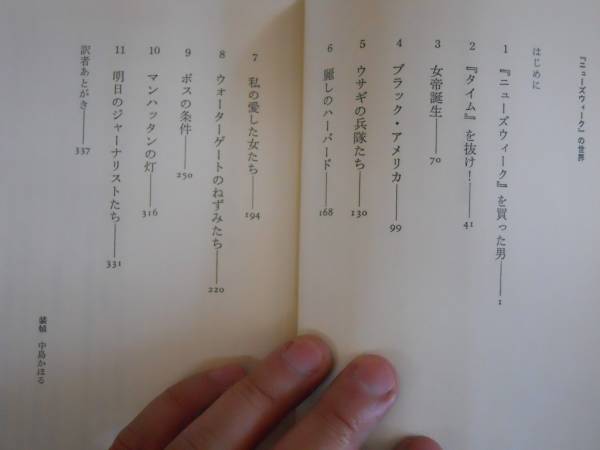 『ニューズウィーク』の世界
はじめに
1 『ニューズウィーク』を買った男――1
2 『タイム』を抜け!――41
3 女帝誕生――70
4 ブラック・アメリカ――99
5 ウサギの兵隊たち――130
6 麗しのハーバード――168
7 私の愛した女たち――194
8 ウォーターゲートのねずみたち――220
9 ボスの条件――250
10 マンハッタンの灯――316
11 明日のジャーナリストたち――331
訳者あとがき――337
装幀 中島かほる